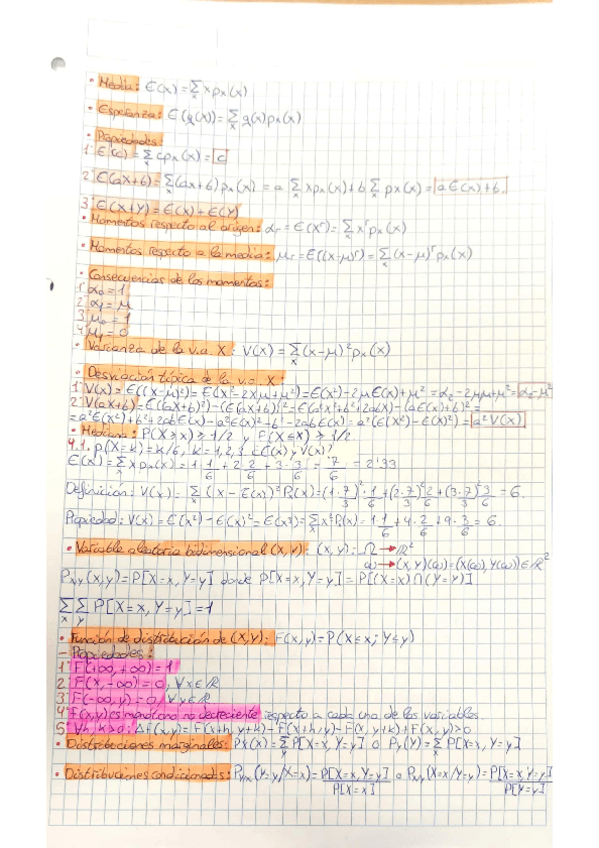 • Media: E(x) = Σx x px(x)
• Esperanza: E(g(x)) = Σx g(x) px(x)
• Propiedades:
1 E(c) = Σx c px(x) = c
2 E(ax+b) = Σx (ax+b) px(x) = a Σx x px(x) + b Σx px(x) = aE(x)+b.
3 E(X+Y) = E(X)+E(Y)
• Momentos respecto al origen: αr = E(X^r) = Σx x^r px(x)
• Momentos respecto a la media: μr = E((X-μ)^r) = Σx (x-μ)^r px(x)
• Consecuencias de los momentos:
1 α0 = 1
2 α1 = μ
3 μ0 = 1
4 μ1 = 0
• Varianza de la v.a. X: V(X) = Σx (x-μ)² px(x)
• Desviación típica de la v.a. X:
1 V(X) = E((X-μ)²) = E(X²-2Xμ+μ²) = E(X²)-2μE(X)+μ² = α2-2μμ+μ² = α2-μ²
2 V(aX+b) = E((aX+b)²)-(E(aX+b))² = E(a²X²+b²+2abX)-(aE(X)+b)² =
= a²E(X²)+b²+2abE(X)-a²E(X)²-b²-2abE(X) = a²(E(X²)-E(X)²) = a²V(X)
• Mediana: P(X≥x) ≥ 1/2 y P(X≤x) ≥ 1/2
4.1. p(X=k) = k/6, k=1,2,3 ¿E(X) y V(X)?
E(X) = Σx x px(x) = 1·1/6 + 2·2/6 + 3·3/6 = 7/6 = 2'33
Definición: V(X) =
Propiedad: V(X) = E(X²)-E(X)² = E(X²) =
• Variable aleatoria bidimensional (X, Y): (X, Y): Ω → ℝ²
ω → (X, Y)(ω) = (X(ω), Y(ω)) ∈ ℝ²
Px,y(x,y) = P[X=x, Y=y] donde P[X=x, Y=y] = P[(X=x)∩(Y=y)]
Σx Σy P[X=x, Y=y] = 1
• Función de distribución de (X, Y): F(x,y) = P(X≤x; Y≤y)
- Propiedades:
1 F(+∞, +∞) = 1
2 F(x, -∞) = 0, ∀x∈ℝ
3 F(-∞, y) = 0, ∀y∈ℝ
4 F(x,y) es monótona no decreciente respecto a cada una de las variables.
5 ∀h, k>0; ΔF(x,y) = F(x+h, y+k) - F(x+h, y) - F(x, y+k) + F(x,y) > 0
• Distribuciones marginales: Px(X) = Σy P[X=x, Y=y] o Py(Y) = Σx P[X=x, Y=y]
• Distribuciones condicionadas: Py/x(Y=y/X=x) = P[X=x, Y=y]/P[X=x] o Px/y(X=x/Y=y) = P[X=x, Y=y]/P[Y=y]